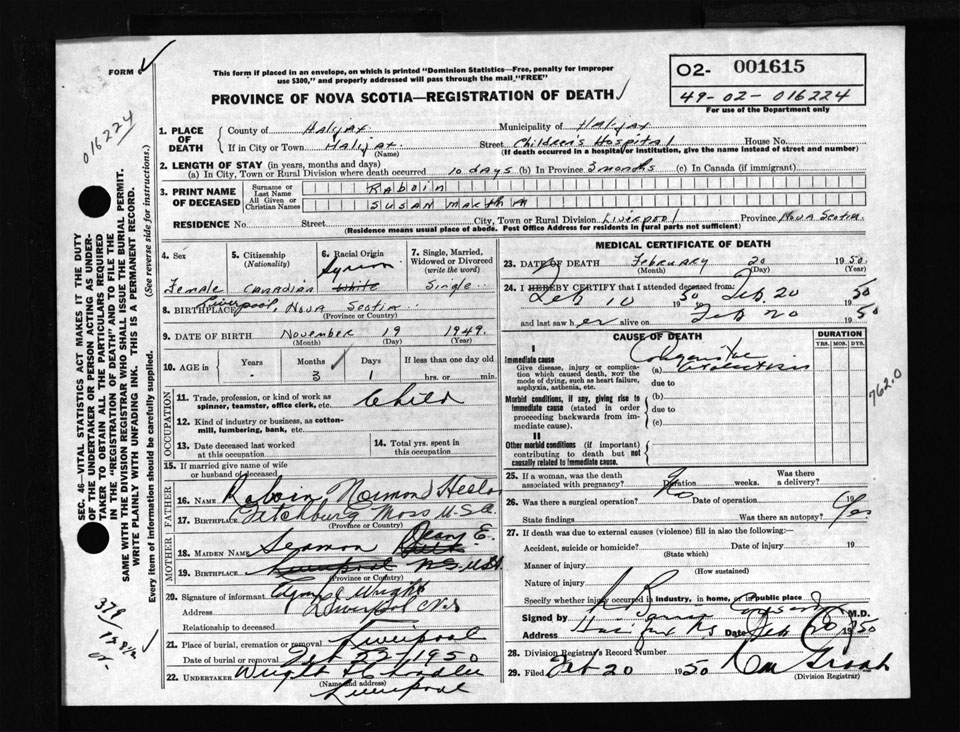 FORM 6
This form if placed in an envelope, on which is printed "Dominion Statistics—Free, penalty for improper
use $300," and properly addressed will pass through the mail "FREE"
PROVINCE OF NOVA SCOTIA—REGISTRATION OF DEATH
02- 001615
49-02-016224
For use of the Department only
016224
SEC. 46 VITAL STATISTICS ACT MAKES IT THE DUTY
OF THE UNDERTAKER OR PERSON ACTING AS UNDER-
TAKER TO OBTAIN ALL THE PARTICULARS REQUIRED
IN THE "REGISTRATION OF DEATH" AND TO FILE THE
SAME WITH THE DIVISION REGISTRAR WHO SHALL ISSUE THE BURIAL PERMIT.
WRITE PLAINLY WITH UNFADING INK. THIS IS A PERMANENT RECORD.
Every item of information should be carefully supplied. (See reverse side for instructions.)
379
1. PLACE OF DEATH
County of Halifax Municipality of Halifax
If in City or Town Halifax (Name) Street Children's Hospital House No.
(If death occurred in a hospital or institution, give the name instead of street and number)
2. LENGTH OF STAY (in years, months and days)
(a) In City, Town or Rural Division where death occurred 10 days (b) In Province 3 months (c) In Canada (if immigrant)
3. PRINT NAME OF DECEASED
Surname or Last Name Raboin
All Given or Christian Names SUSAN MARTHA
RESIDENCE No. Street City, Town or Rural Division Liverpool Province Nova Scotia
(Residence means usual place of abode. Post Office Address for residents in rural parts not sufficient)
4. Sex Female
5. Citizenship (Nationality) Canadian
6. Racial Origin White
7. Single, Married, Widowed or Divorced (write the word) Single
8. BIRTHPLACE Liverpool, Nova Scotia
(Province or Country)
9. DATE OF BIRTH November 19 1949
(Month) (Day) (Year)
10. AGE IN Years - Months 3 Days 1 If less than one day old hrs. or min.
OCCUPATION
11. Trade, profession or kind of work as spinner, teamster, office clerk, etc. Child
12. Kind of industry or business, as cotton-mill, lumbering, bank, etc.
13. Date deceased last worked at this occupation
14. Total yrs. spent in this occupation
15. If married give name of wife or husband of deceased
FATHER
16. NAME Raboin, Normond
17. BIRTHPLACE Fitchburg Mass U.S.A.
(Province or Country)
MOTHER
18. MAIDEN NAME Seaman E.
19. BIRTHPLACE Liverpool N.S.
(Province or Country)
20. Signature of informant Wright
Address Liverpool N.S
Relationship to deceased
21. Place of burial, cremation or removal Liverpool
Date of burial or removal Feb 22 - 1950
22. UNDERTAKER Wright
(Name and address)
Liverpool
MEDICAL CERTIFICATE OF DEATH
23. DATE OF DEATH February 20 1950
(Month) (Day) (Year)
24. I HEREBY CERTIFY that I attended deceased from:
Feb 10 1950 Feb 20 1950
and last saw her alive on Feb 20 1950
CAUSE OF DEATH
DURATION
YRS. MOS. DYS.
I
Immediate cause
Give disease, injury or complication which caused death, NOT the mode of dying, such as heart failure, asphyxia, asthenia, etc.
(a) atelectasis
due to
Morbid conditions, if any, giving rise to immediate cause (stated in order proceeding backwards from immediate cause).
(b)
due to
(c)
II
Other morbid conditions (if important) contributing to death but not causally related to immediate cause.
762.0
25. If a woman, was the death associated with pregnancy? Duration weeks. Was there a delivery?
26. Was there a surgical operation? No Date of operation 19
State findings Was there an autopsy? Yes
27. If death was due to external causes (violence) fill in also the following:
Accident, suicide or homicide? Date of injury 19
(State which)
Manner of injury
(How sustained)
Nature of injury
Specify whether injury occurred in industry, in home, or in public place
Signed by M.D.
Address Halifax NS Date Feb 20 1950
28. Division Registrar's Record Number
29. Filed Feb 20 1950
(Division Registrar)